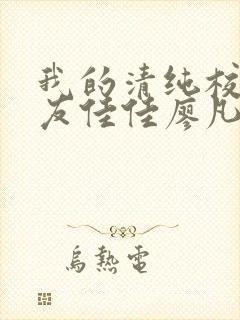 我的清纯校
友佳佳廖凡
烏熱電